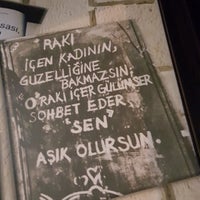 sası,
RAKI
İÇEN KADININ,
GÜZELLİĞİNE
BAKMAZSIN.
"O" RAKI İÇER GÜLÜMSER
SOHBET EDER...
"SEN"
AŞIK OLURSUN.